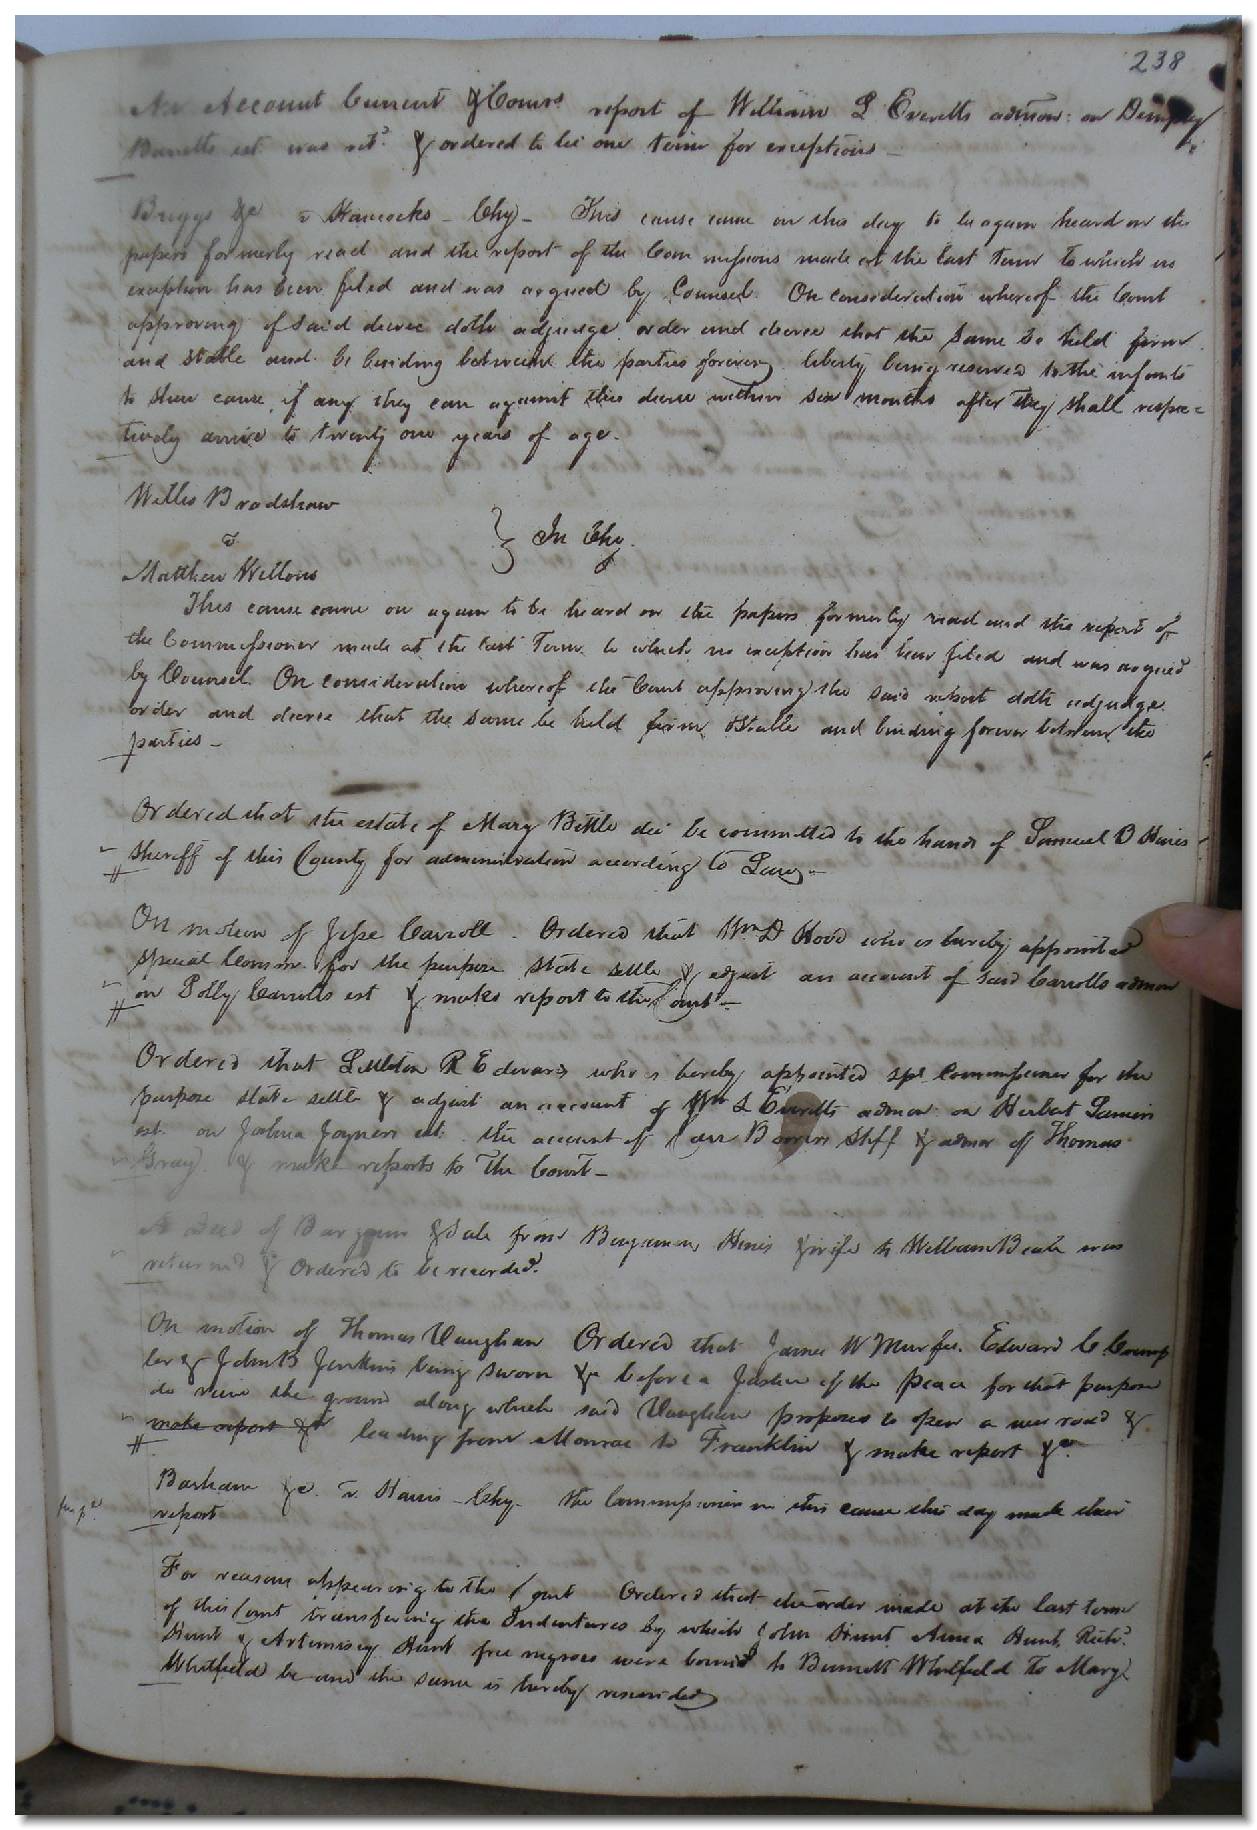 238
An Account Current & Comrs report of William L Everetts admor: on Dempsey
Barretts est was retd & ordered to lie one term for exceptions –
Briggs &c v Hancocks – Chy – This cause came on this day to be again heard on the
papers formerly read and the report of the Commissions made at the last term to which no
exception has been filed and was argued by Counsel. On consideration whereof the Court
approving of said decree doth adjudge order and decree that the same be held firm
and stable and be binding between the parties forever, liberty being reserved to the infants
to shew cause, if any they can against this decree within six months after they shall respec=
tively arrive to twenty one years of age.
Willis Bradshaw
v } In Chy.
Matthew Willons
This cause came on again to be heard on the papers formerly read and the report of
the Commissioner made at the last Term to which no exception has been filed and was argued
by Counsel. On consideration whereof the Court approving the said report doth adjudge
order and decree that the same be held firm & stable and binding forever between the
parties –
Ordered that the estate of Mary Bittle dec be committed to the hands of Samuel B Hines
Sheriff of this County for administration according to Law –
On motion of Jesse Carroll. Ordered that Wm D Hood who is hereby appointed
special Comm. for the purpose state settle & adjust an account of said Carrolls admon
on Polly Carrolls est & make report to the Court –
Ordered that Littleton R Edwards who is hereby appointed spl. Commissioner for the
purpose state settle & adjust an account of Wm L Everetts admor on Herbert
est. on Joshua Joyners est. the account of Carr Bowers Shff & admor of Thomas
Gray & make reports to the Court –
A Deed of Bargain & Sale from Benjamin Hines & wife to William Beale was
returned & ordered to be recorded.
On motion of Thomas Vaughan Ordered that James W Murfee, Edward C Crump
ler & John B Jenkins being sworn &c before a Justice of the Peace for that purpose
do view the ground along which said Vaughan proposes to open a new road &
make report &c leading from Monroe to Franklin & make report &c.
Barham &c. v. Harris – Chy – The Commissioners in this cause this day made their
report
For reasons appearing to the Court Ordered that the order made at the last term
of this Court transferring the Indentures by which John Hunt, Anna Hunt, Richd.
Hunt & Artemisey Hunt free negroes were bound to Burnett Whitfield to Mary
Whitfield be and the same is hereby rescinded